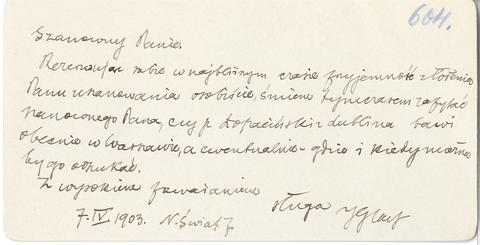 604.
Szanowny Panie.
Rezerwując sobie w najbliższym czasie przyjemność złożenia
Panu uszanowania osobiście, śmiem tymczasem zapytać
Szanownego Pana, czy p. Łopaciński z Lublina bawi
obecnie w Warszawie, a ewentualnie – gdzie i kiedy można
by go odszukać.
Z wysokiem poważaniem
sługa
7.IV 1903. N. Świat 7.